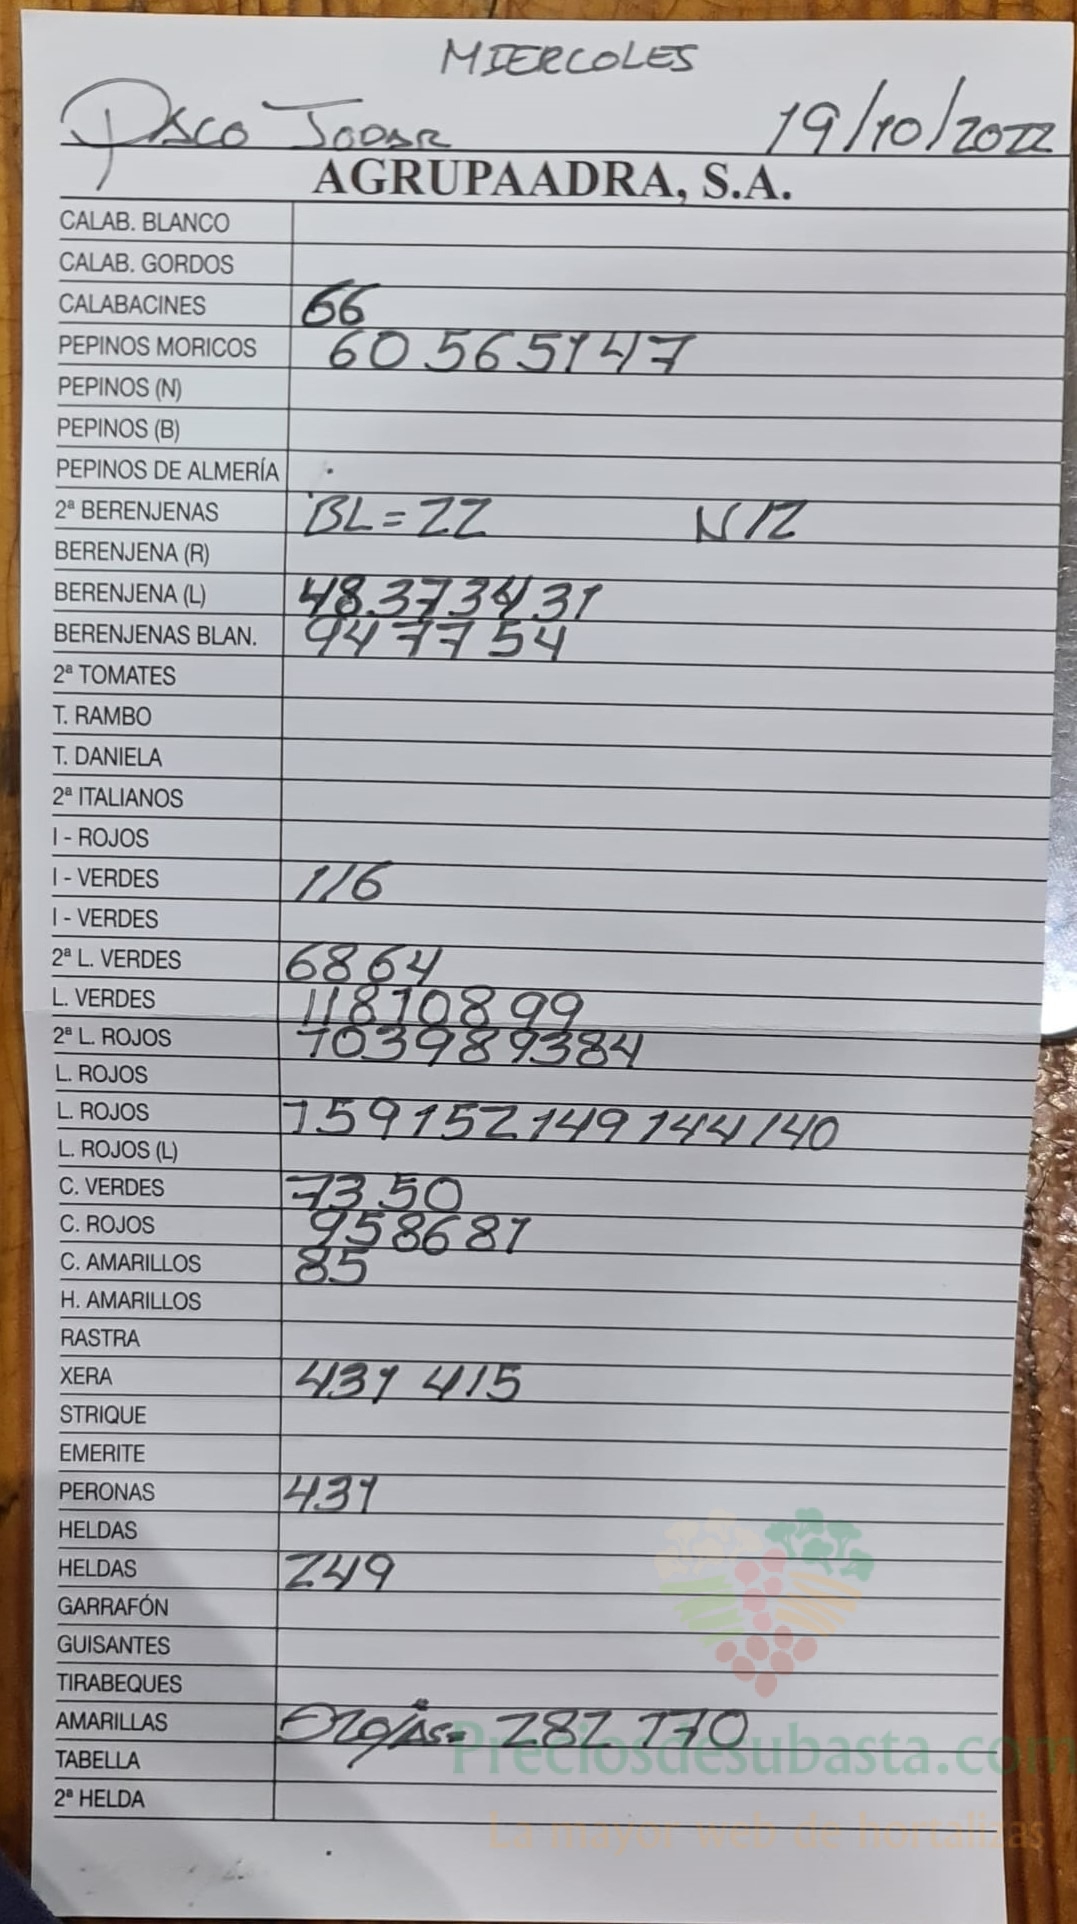 MIERCOLES
PACO JODAR 19/10/2022
AGRUPAADRA, S.A.
CALAB. BLANCO
CALAB. GORDOS
CALABACINES 66
PEPINOS MORICOS 60 56 51 47
PEPINOS (N)
PEPINOS (B)
PEPINOS DE ALMERÍA
2ª BERENJENAS BL=22 N 12
BERENJENA (R)
BERENJENA (L) 48 37 34 31
BERENJENAS BLAN. 94 77 54
2ª TOMATES
T. RAMBO
T. DANIELA
2ª ITALIANOS
I - ROJOS
I - VERDES 116
I - VERDES
2ª L. VERDES 68 64
L. VERDES 118 108 99
2ª L. ROJOS 103 98 93 84
L. ROJOS
L. ROJOS 159 152 149 144 140
L. ROJOS (L)
C. VERDES 73 50
C. ROJOS 95 86 81
C. AMARILLOS 85
H. AMARILLOS
RASTRA
XERA 431 415
STRIQUE
EMERITE
PERONAS 431
HELDAS
HELDAS 249
GARRAFÓN
GUISANTES
TIRABEQUES
AMARILLAS 282 170
TABELLA
2ª HELDA
Preciosdesubasta.com
La mayor web de hortalizas